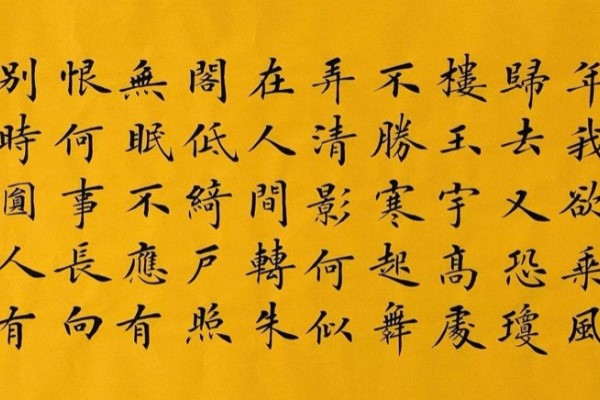 年我欲乘風
歸去又恐瓊
樓玉宇高處
不勝寒起舞
弄清影何似
在人間轉朱
閣低綺戶照
無眠不應有
恨何事長向
別時圓人有